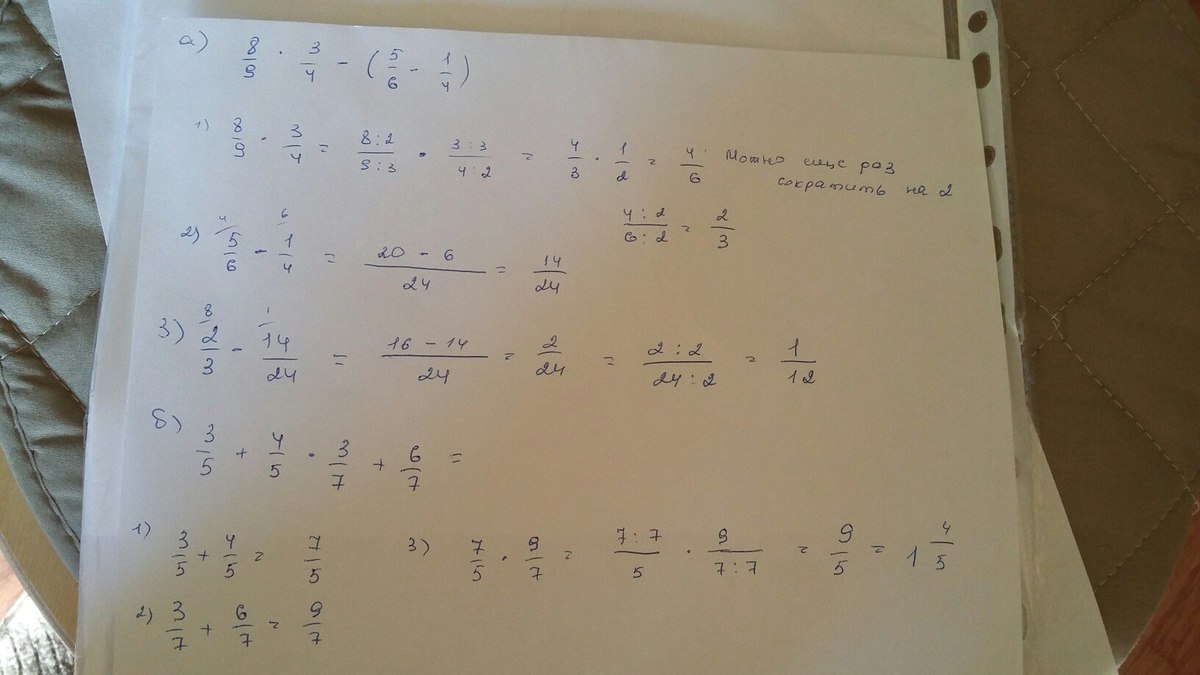 а) 8/9 · 3/4 - (5/6 - 1/4)
1) 8/9 · 3/4 = 8:2/9:3 · 3:3/4:2 = 4/3 · 1/2 = 4/6 Можно еще раз
сократить на 2
4:2/6:2 = 2/3
2) 4/ 5/6 - 6/ 1/4 = 20 - 6/24 = 14/24
3) 8/ 2/3 - 1/ 14/24 = 16 - 14/24 = 2/24 = 2:2/24:2 = 1/12
б) 3/5 + 4/5 · 3/7 + 6/7 =
1) 3/5 + 4/5 = 7/5
3) 7/5 · 9/7 = 7:7/5 · 9/7:7 = 9/5 = 1 4/5
2) 3/7 + 6/7 = 9/7